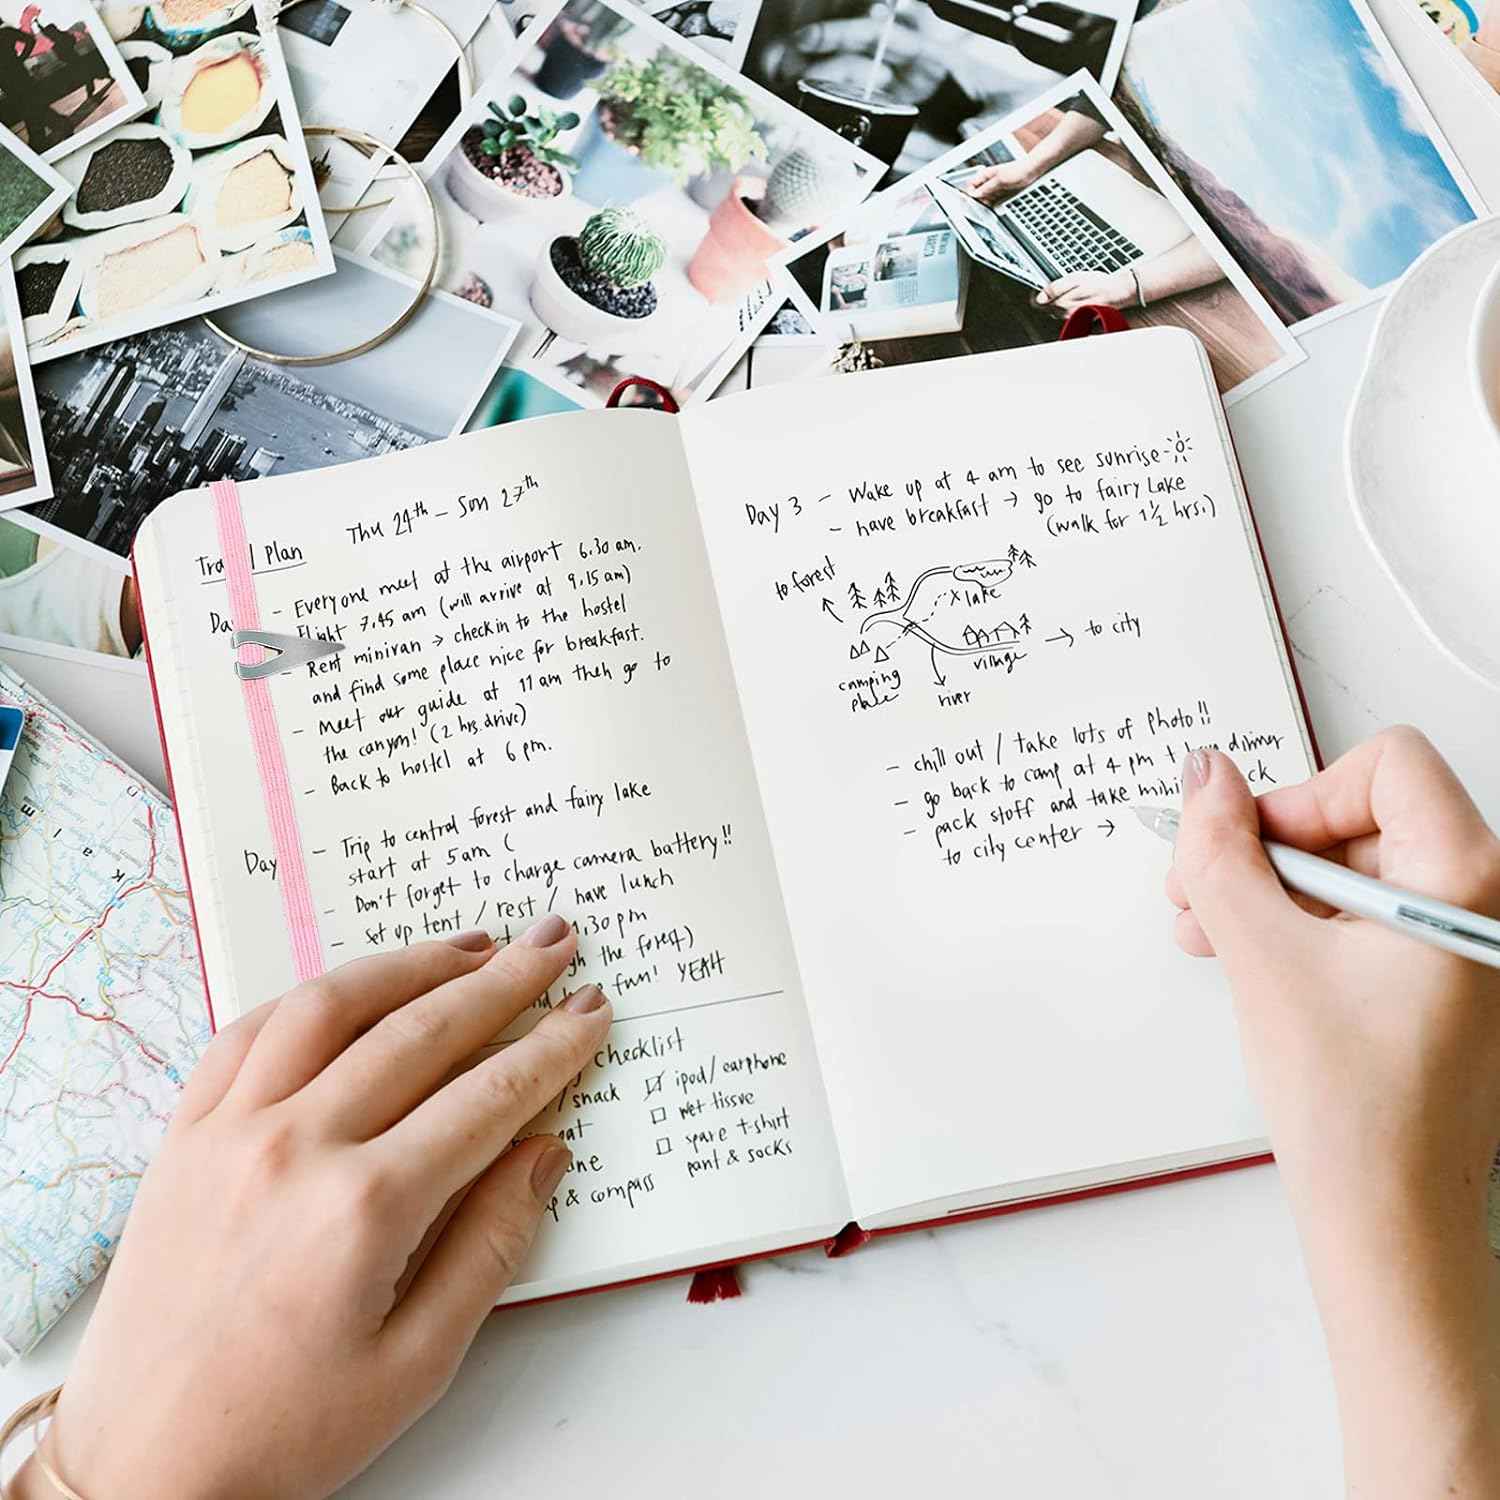 Thu 24th - Sun 27th
Travel Plan
- Everyone meet at the airport 6.30 am.
Flight 7,45 am (will arrive at 9,15 am)
Rent minivan → check in to the hostel
and find some place nice for breakfast.
- Meet our guide at 11 am then go to
the canyon! (2 hrs. drive)
- Back to hostel at 6 pm.
Day
- Trip to central forest and fairy lake
start at 5 am (
- Don't forget to charge camera battery!!
- set up tent / rest / have lunch
1,30 pm
the forest)
fun! YEAH
checklist
/ snack
☑ ipod / earphone
☐ wet tissue
☐ spare t-shirt
pant & socks
& compass
Day 3 - Wake up at 4 am to see sunrise
- have breakfast → go to fairy Lake
(walk for 1½ hrs.)
to forest
X lake
camping
place
river
village
→ to city
- chill out / take lots of photo!!
- go back to camp at 4 pm + dinner
- pack stuff and take
to city center →